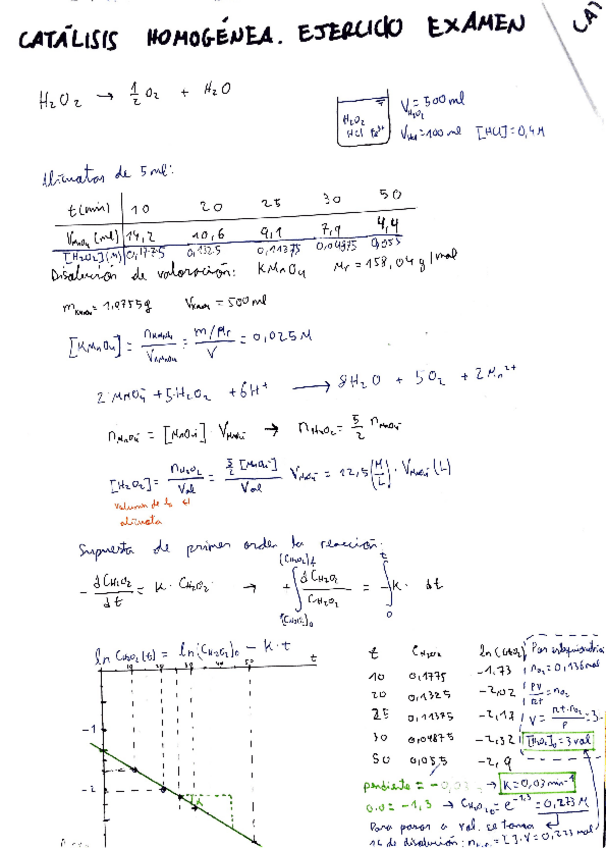 CATÁLISIS HOMOGÉNEA. EJERCICIO EXAMEN
CAT
H₂O₂ → 1/2 O₂ + H₂O
H₂O₂
HCl Fe³⁺
V_H₂O₂ = 500 ml
V_HCl = 100 ml [HCl] = 0,4 M
Alícuotas de 5 ml:
t (min) | 10 20 25 30 50
V_MnO₄⁻ (ml) | 14,2 10,6 9,1 7,9 4,4
[H₂O₂] (M) | 0,1775 0,1325 0,11375 0,09875 0,055
Disolución de valoración: KMnO₄ Mr = 158,04 g/mol
m_KMnO₄ = 1,9755 g V_KMnO₄ = 500 ml
[KMnO₄] = n_KMnO₄ / V_KMnO₄ = (m/Mr) / V = 0,025 M
2 MnO₄⁻ + 5 H₂O₂ + 6H⁺ → 8H₂O + 5O₂ + 2Mn²⁺
n_MnO₄⁻ = [MnO₄⁻] V_MnO₄⁻ → n_H₂O₂ = 5/2 n_MnO₄⁻
[H₂O₂] = n_H₂O₂ / Val = 5/2 [MnO₄⁻] / Val V_MnO₄⁻ = 12,5 (M/L) · V_MnO₄⁻ (L)
volumen de la
alícuota
Supuesta de primer orden la reacción:
- dC_H₂O₂ / dt = K · C_H₂O₂ → + ∫ dC_H₂O₂ / C_H₂O₂ = ∫ - K · dt
ln C_H₂O₂ (t) = ln (C_H₂O₂)₀ - K · t
t
-1
-2
α
t C_H₂O₂ ln (C_H₂O₂)
10 0,1775 -1,73
20 0,1325 -2,02
25 0,11375 -2,17
30 0,09875 -2,32
50 0,055 -2,9
Por estequiometría
n_O₂ = 0,136 mol
PV / RT = n_O₂
V = RT · n_O₂ / P = 3
[H₂O₂]₀ = 3 vol
pendiente = -0,03 → K = 0,03 min⁻¹
o.o = -1,3 → C_H₂O₂,₀ = e^-1,3 = 0,273 M
Para pasar a vol. se toma
1L de disolución: n = [ ] · V = 0,273 mol